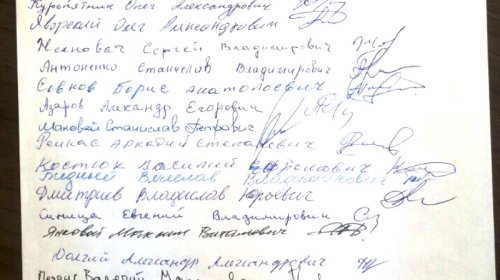 Куропятник Олег Александрович
Яворский Олег Александрович
Сергей Владимирович
Антоненко Станислав Владимирович
Совков Борис Анатолоевич
Азаров Александр Егорович
Маковой Станислав Петрович
Репкас Аркадий Степанович
Костюк Василий
Бидный Вячеслав
Дмитриев Владислав Юрьевич
Синица Евгений Владимирович
Янковой Максим Витальевич
Долгий Александр Александрович
Валерий